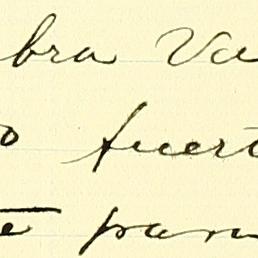 bra Va
o fuert
te para